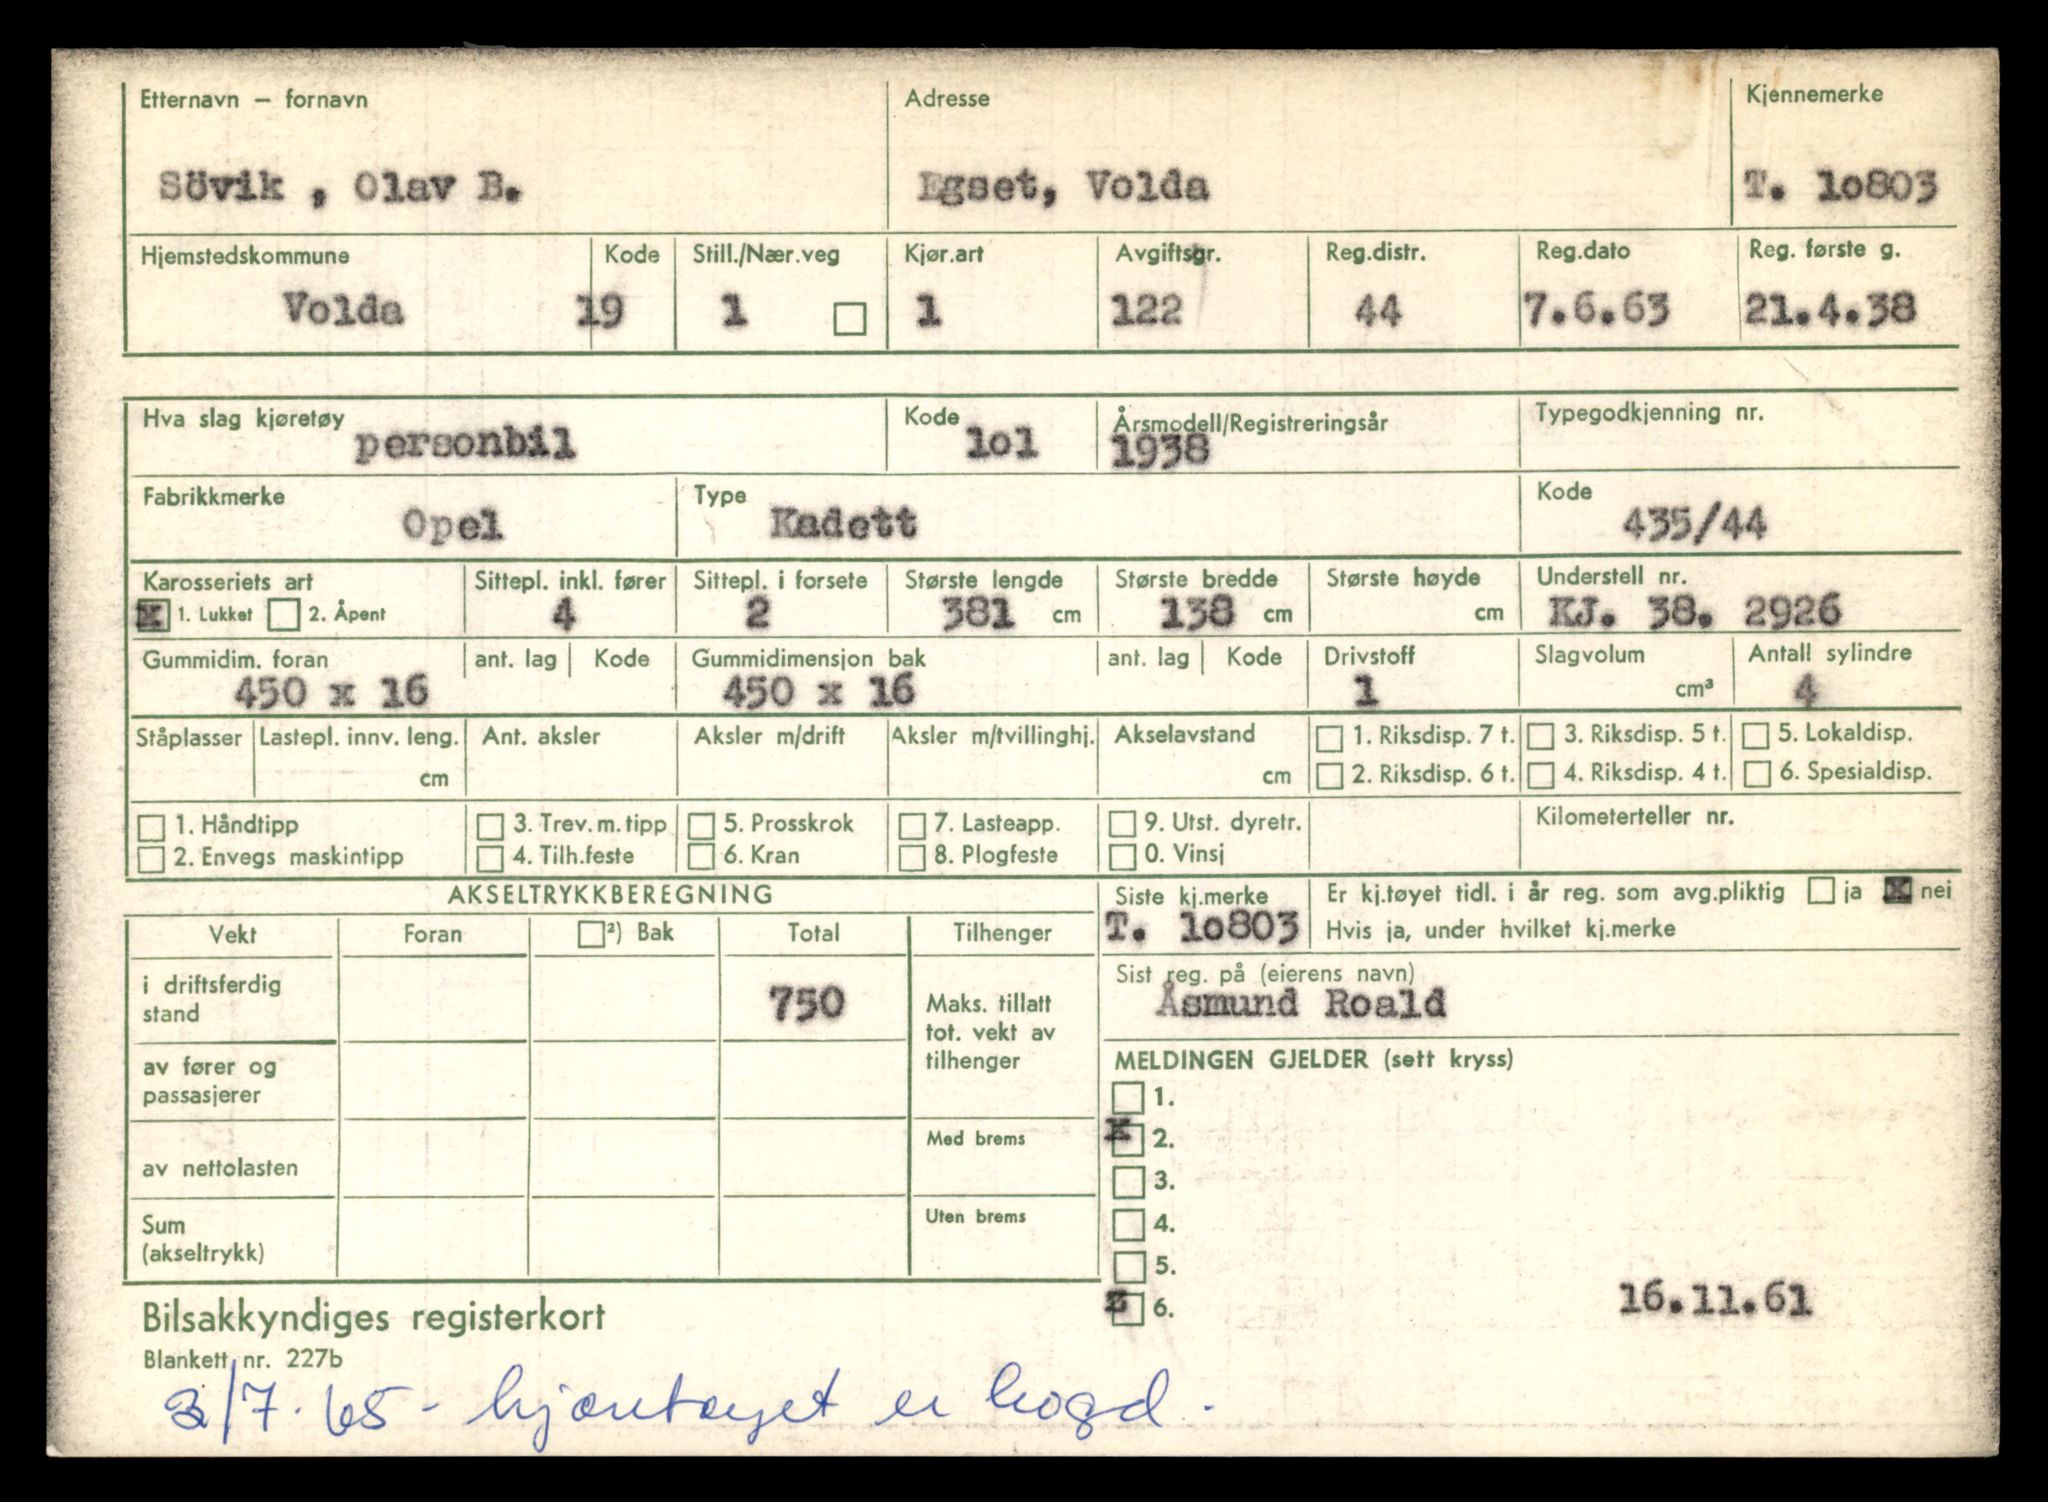 Etternavn — fornavn Adresse Kjennemerke
Sövik , Olav B. Egset, Volda T. 10803
Hjemstedskommune Kode Still./Nær.veg Kjør.art Avgiftsgr. Reg.distr. Reg.dato Reg. første g.
Volda 19 1 1 122 44 7.6.63 21.4.38
Hva slag kjøretøy Kode Årsmodell/Registreringsår Typegodkjenning nr.
personbil 101 1938
Fabrikkmerke Type Kode
Opel Kadett 435/44
Karosseriets art Sittepl. inkl. fører Sittepl. i forsete Største lengde Største bredde Største høyde Understell nr.
x 1. Lukket 2. Åpent 4 2 381 cm 138 cm cm KJ. 38. 2926
Gummidim. foran ant. lag Kode Gummidimensjon bak ant. lag Kode Drivstoff Slagvolum Antall sylindre
450 x 16 450 x 16 1 cm³ 4
Ståplasser Lastepl. innv. leng. Ant. aksler Aksler m/drift Aksler m/tvillinghj. Akselavstand 1. Riksdisp. 7 t. 3. Riksdisp. 5 t. 5. Lokaldisp.
cm cm 2. Riksdisp. 6 t. 4. Riksdisp. 4 t. 6. Spesialdisp.
1. Håndtipp 3. Trev. m. tipp 5. Prosskrok 7. Lasteapp. 9. Utst. dyretr. Kilometerteller nr.
2. Envegs maskintipp 4. Tilh.feste 6. Kran 8. Plogfeste 0. Vinsj
AKSELTRYKKBEREGNING Siste kj.merke Er kj.tøyet tidl. i år reg. som avg.pliktig ja x nei
T. 10803 Hvis ja, under hvilket kj.merke
Vekt Foran ²) Bak Total Tilhenger
Sist reg. på (eierens navn)
Åsmund Roald
i driftsferdig
stand 750
Maks. tillatt
tot. vekt av
tilhenger
av fører og
passasjerer
MELDINGEN GJELDER (sett kryss)
1.
x 2.
Med brems
av nettolasten
3.
Uten brems
4.
Sum
(akseltrykk)
5.
6.
16.11.61
Bilsakkyndiges registerkort
Blankett nr. 227b
3/7.65 - kjøretøyet er hogd.